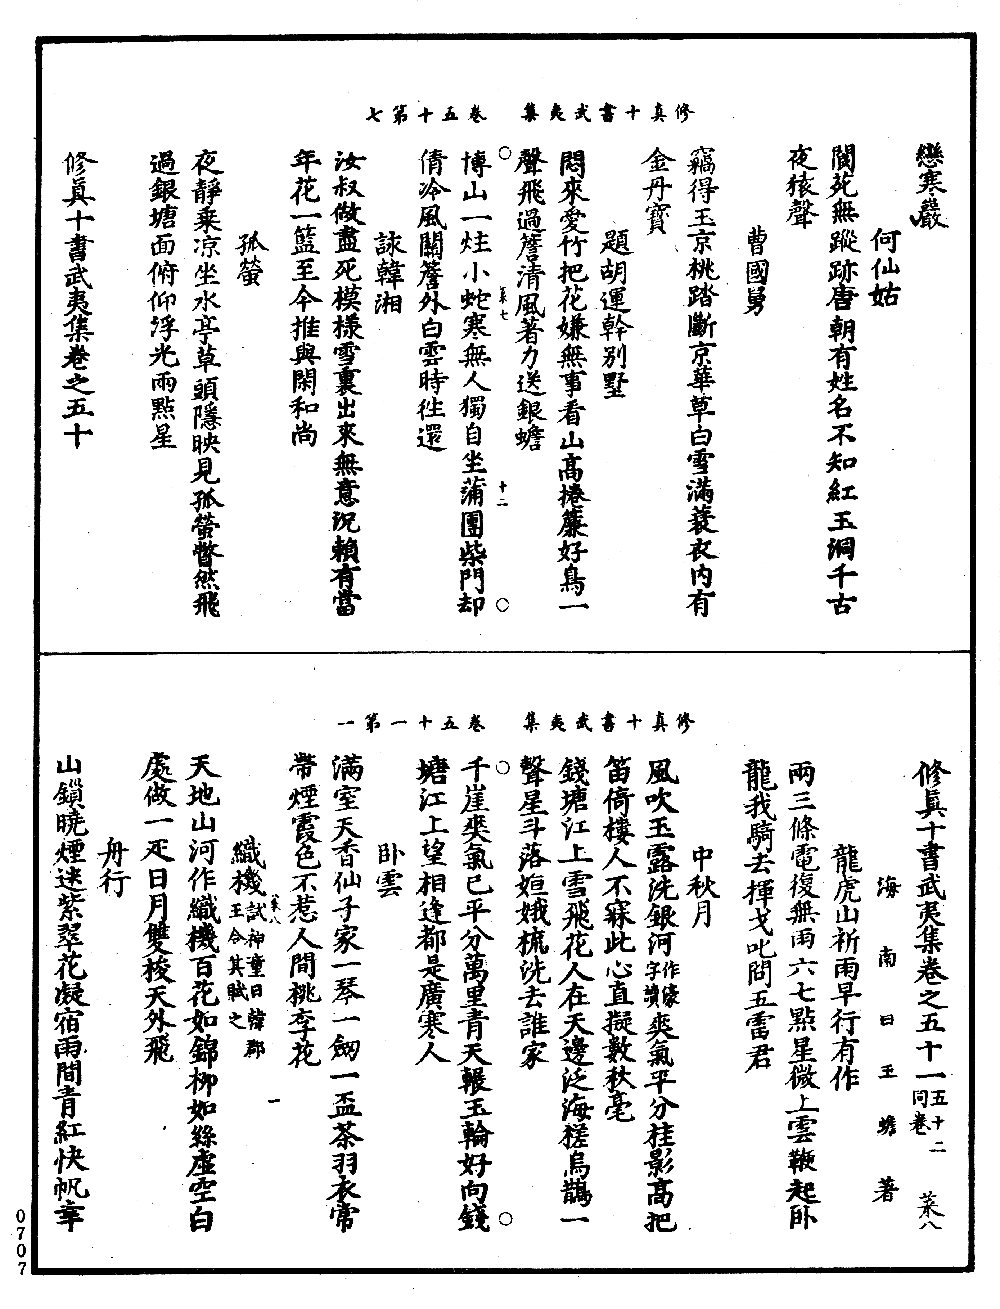 修真十書武夷集　卷五十第七
戀寒巖
何仙姑
閬苑無蹤跡唐朝有姓名不知紅玉洞千古
夜猿聲
曹國舅
竊得玉京桃踏斷京華草白雪滿蓑衣內有
金丹寶
題胡運幹別墅
悶來愛竹把花嫌無事看山高捲簾好鳥一
聲飛過簷清風著力送銀蟾
菜七　十二
博山一炷小蛇寒無人獨自坐蒲團柴門却
倩冷風關簷外白雲時往還
詠韓湘
汝叔做盡死模樣雪裏出來無意況賴有當
年花一籃至今推與閑和尚
孤螢
夜靜乘凉坐水亭草頭隱映見孤螢瞥然飛
過銀塘面俯仰浮光兩點星
修真十書武夷集卷之五十
修真十書武夷集　卷五十一第一
修真十書武夷集卷之五十一 五十二同卷　菜八
海南白玉蟾著
龍虎山祈雨早行有作
兩三條電復無雨六七點星微上雲鞭起卧
龍我騎去揮戈叱問五雷君
中秋月
風吹玉露洗銀河 作傣字讀 爽氣平分桂影高把
笛倚樓人不寐此心直擬數秋毫
錢塘江上雪飛花人在天邊泛海槎烏鵲一
聲星斗落姮娥梳洗去誰家
千崖爽氣已平分萬里青天輾玉輪好向錢
塘江上望相逢都是廣寒人
卧雲
滿室天香仙子家一琴一劒一盃茶羽衣常
帶煙霞色不惹人間桃李花
菜八　一
織機 試神童日韓郡王令其賦之
天地山河作織機百花如錦柳如絲虛空白
處做一疋日月雙梭天外飛
舟行
山鎖曉煙迷紫翠花凝宿雨間青紅快帆幸
0707